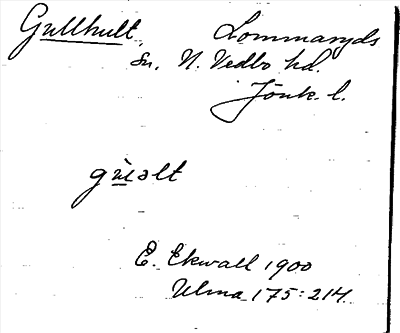 Gullhult. Lommaryds
sn. N. Vedbo hd.
Jönk. l.
gùəlt
E. Ekwall 1900
Ulma 175:214.